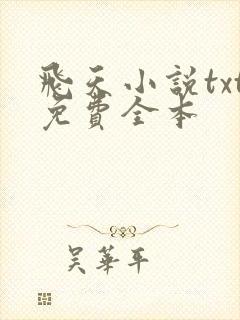 飛天小說txt
免費全本
吴華平